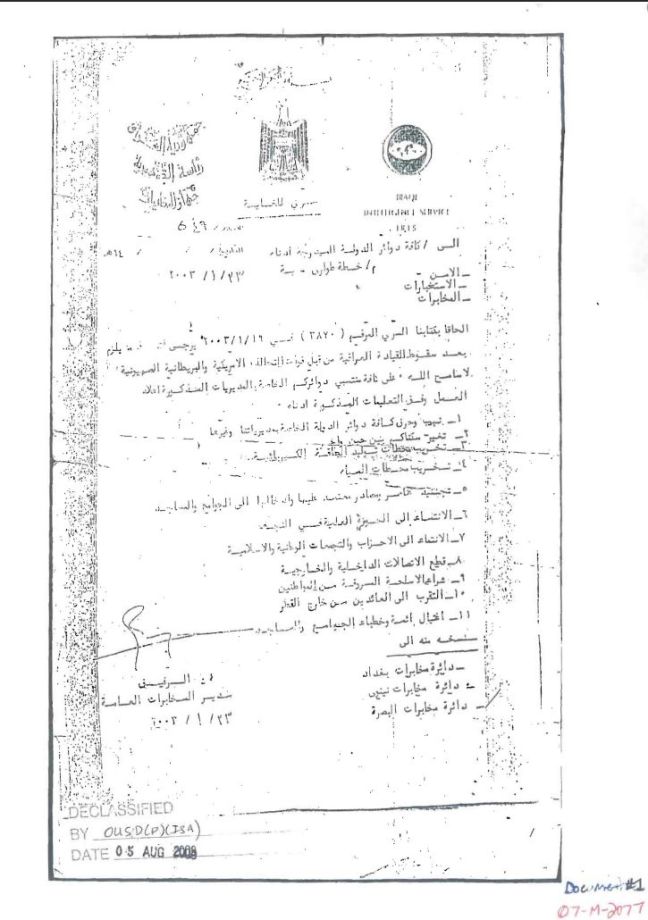 سري للخاصة
IRAQI
INTELLIGENCE SERVICE
IRIS
٥٤٩
الى / كافة دوائر الدولة المدرجة ادناه
م/ خطة طوارئ
٢٠٠٣/١/٢٣
ـ الامن
ـ الاستخبارات
ـ المخابرات
الحاقا بكتابنا السري المرقم (٣٨٧٠) في ٢٠٠٣/١/١٦ يرجى ما يلزم
بعد سقوط القيادة العراقية من قبل قوات الامريكية والبريطانية الصهيونية
لاسامح الله على كافة منتسبي دوائركم الخاصة المديريات المذكورة اعلاه
العمل وفق التعليمات المذكورة ادناه
١ـ وحرق كافة دوائر الدولة الخاصة بمديرياتنا وغيرها
٢ـ تغيير بين حين واخر
٣ـ تخريب محطات توليد الطاقة الكهربائية
٤ـ تخريب محطات المياه
٥ـ ومصادر معتمد عليها وادخالها الى الجوامع والمساجد
٦ـ الانتماء الى الحوزة العلمية في النجف
٧ـ الانتماء الى الاحزاب والتجمعات الوطنية والاسلامية
٨ـ قطع الاتصالات الداخلية والخارجية
٩ـ شراء الاسلحة المسروقة من المواطنين
١٠ـ التقرب الى العائدين من خارج القطر
١١ـ اغتيال ائمة وخطباء الجوامع والمساجد
نسخه منه الى
ـ دائرة مخابرات بغداد
ـ دائرة مخابرات نينوى
ـ دائرة مخابرات البصرة
مدير المخابرات العامة
٢٠٠٣/١/٢٣
DECLASSIFIED
BY OUSD(P)(ISA)
DATE 05 AUG 2009
Document #1
07-M-2077